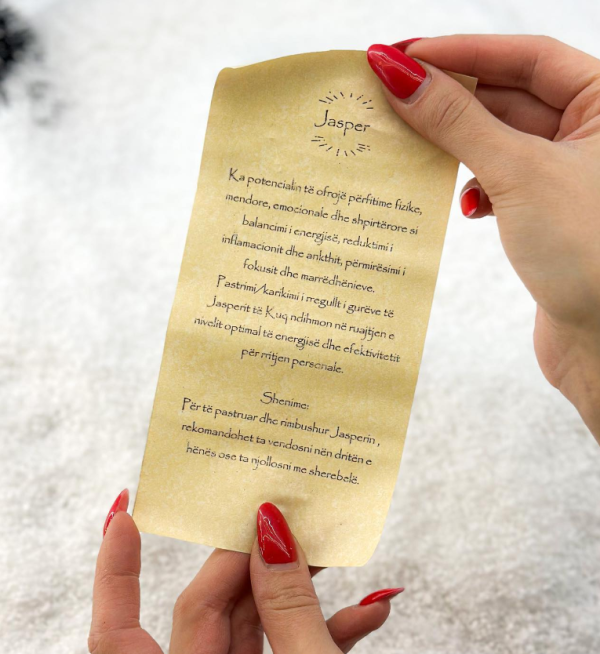 Jasper
Ka potencialin të ofrojë përfitime fizike,
mendore, emocionale dhe shpirtërore si
balancimi i energjisë, reduktimi i
inflamacionit dhe ankthit, përmirësimi i
fokusit dhe marrëdhënieve.
Pastrimi/karikimi i rregullt i gurëve të
Jasperit të Kuq ndihmon në ruajtjen e
nivelit optimal të energjisë dhe efektivitetit
për rritjen personale.
Shenime:
Për të pastruar dhe rimbushur Jasperin,
rekomandohet ta vendosni nën dritën e
hënës ose ta njollosni me sherebelë.